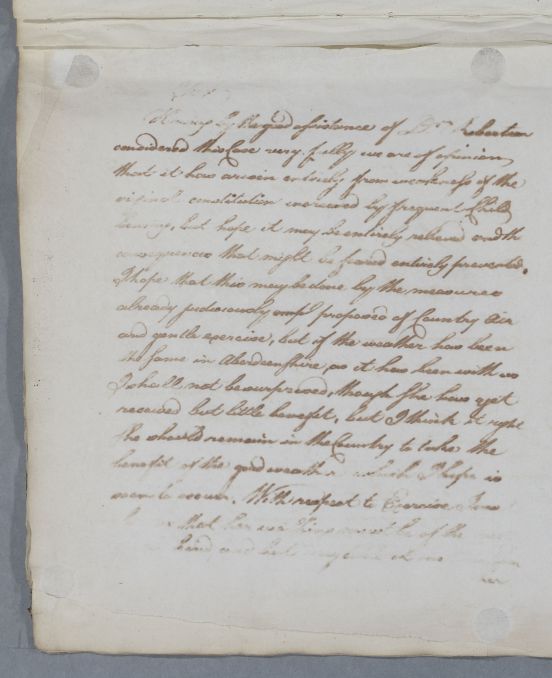 Having by the good assistance of Dr. Robertson
considered this Case very fully we are of opinion
that it has arisen entirely from weakness of the
original constitution increased by frequent Child
bearing, but hope it may be entirely relieved and th
consequences that might be feared entirely prevented.
I hope that this may be done by the measures
already judiciously empl proposed of Country Air
and gentle exercise, but if the weather has been
the same in Aberdeenshire as it has been with us
I shall not be surprised, though She has yet
received but little benefit, but I think it right
She should remain in the Country to take the
benefit of the good weather which I hope is
soon to occur. With respect to Exercise
that her must be of the
kind and but